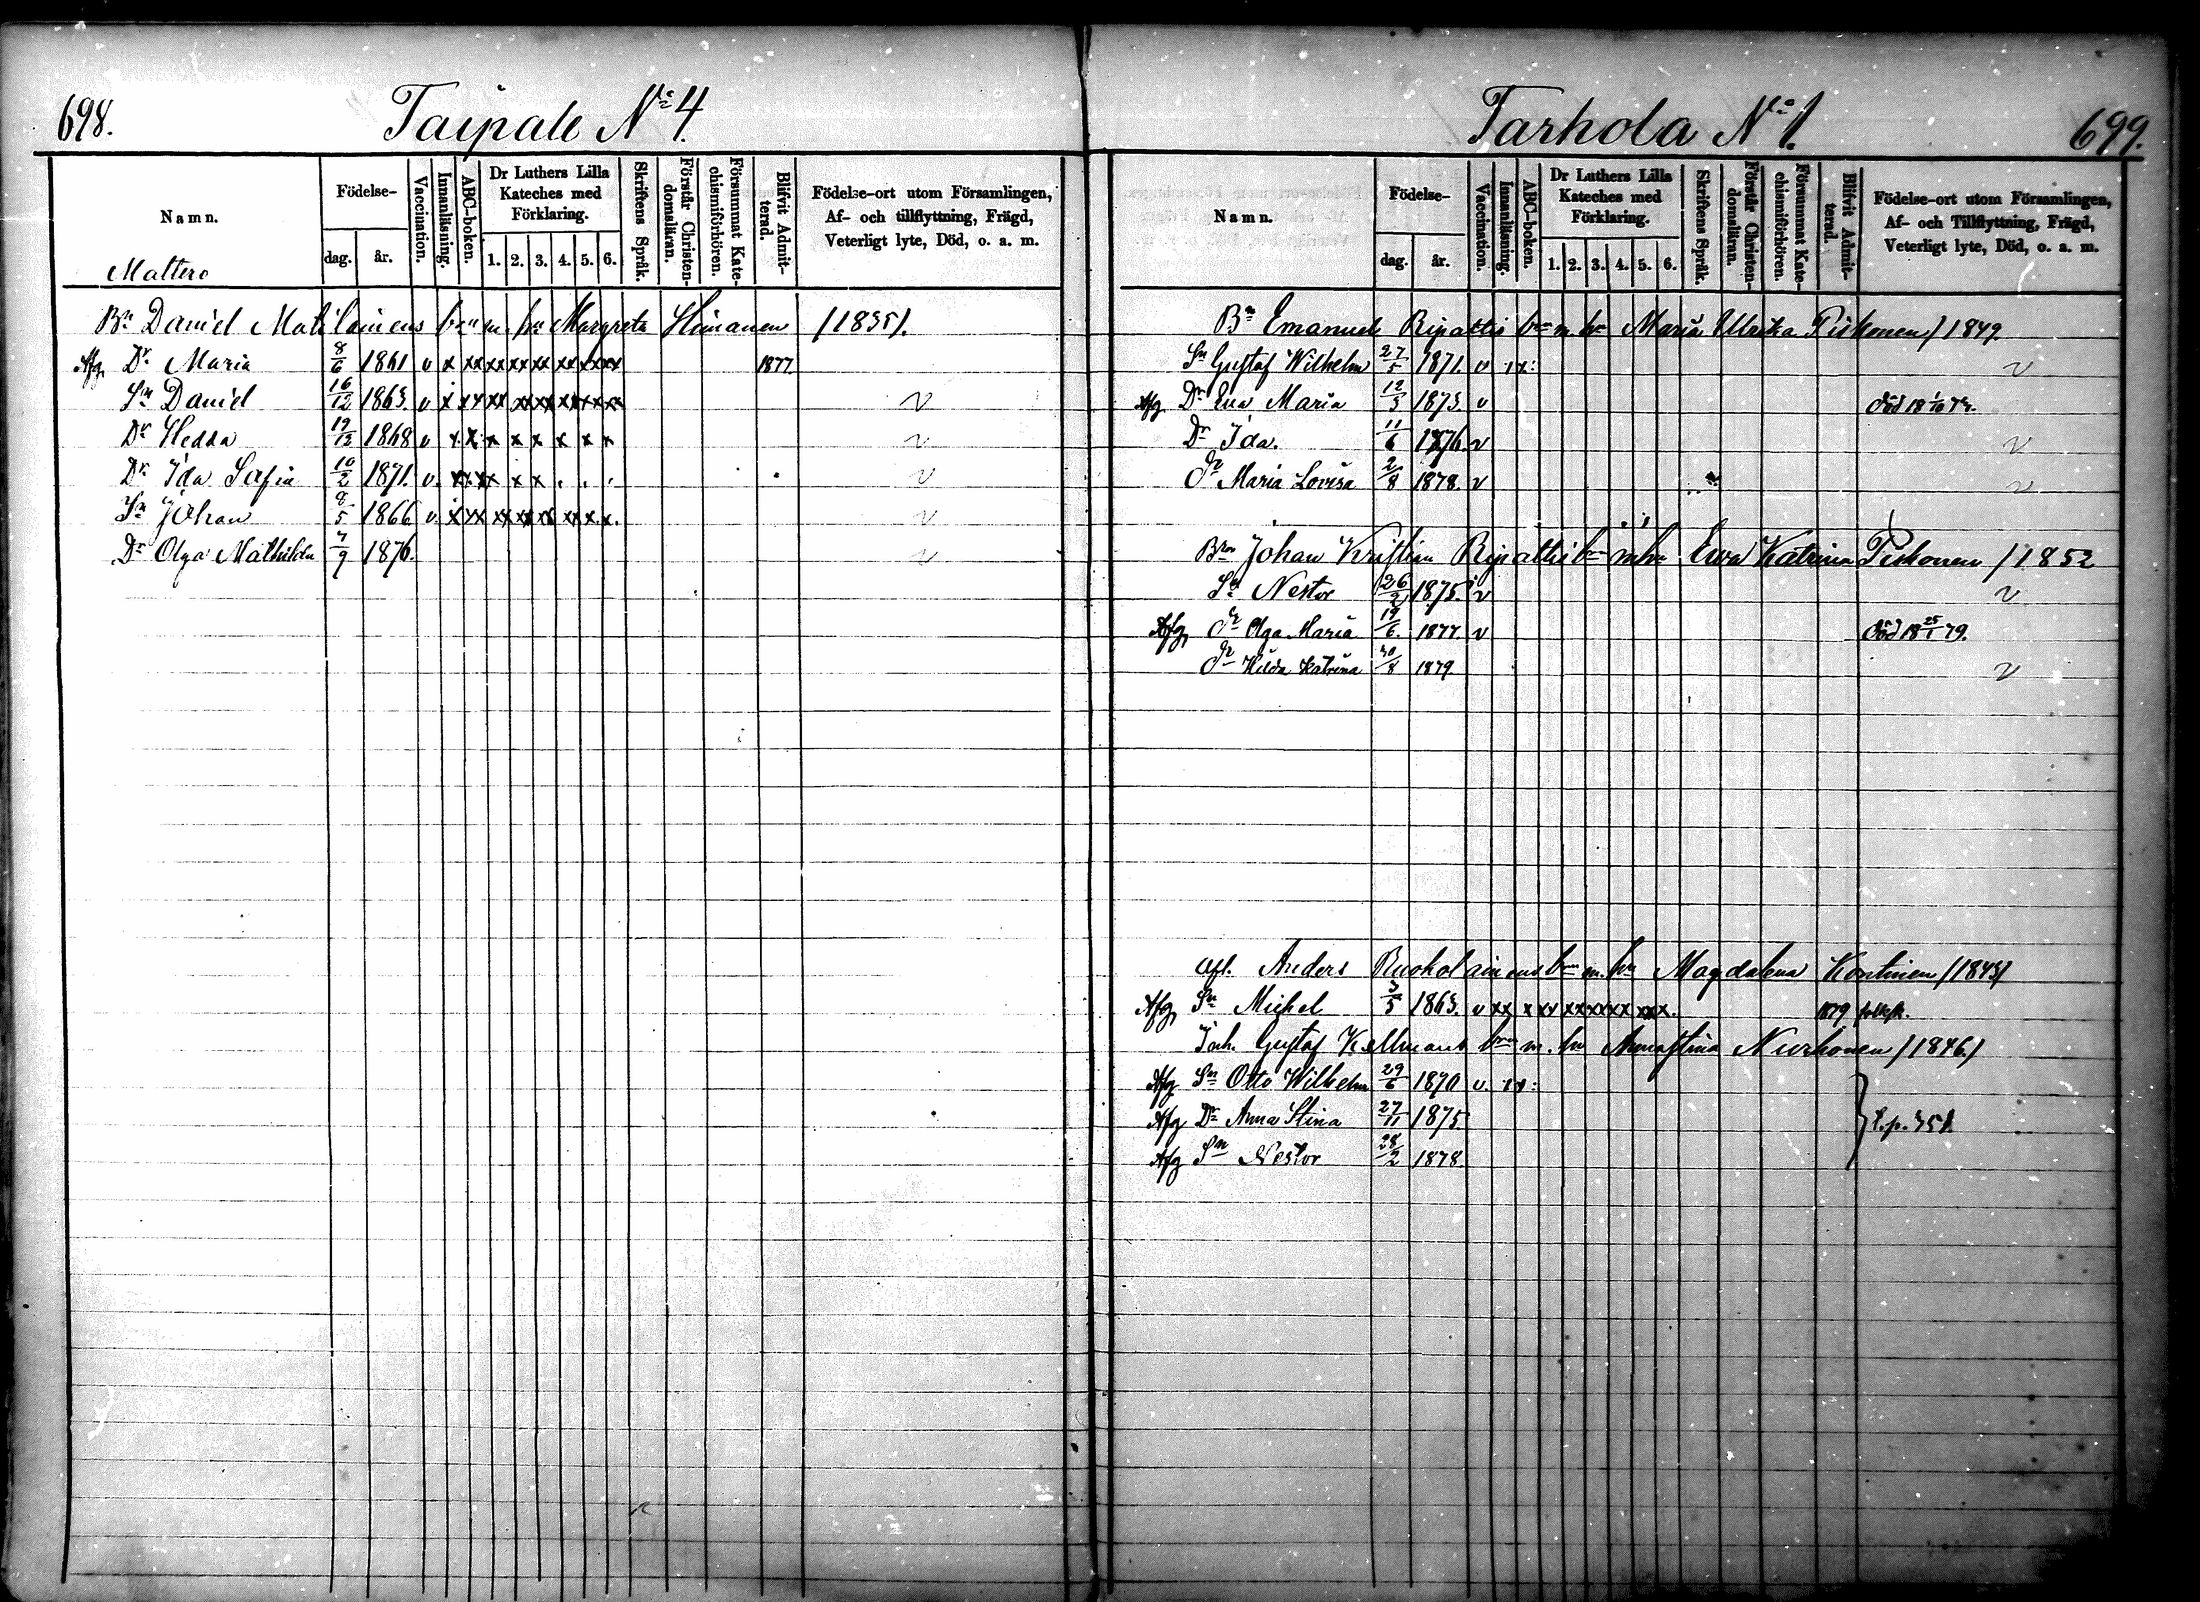 698.
Taipale No 4.
Namn.
Födelse-
dag.
år.
Vaccination.
Innanläsning.
ABC-boken.
Dr Luthers Lilla Kateches med Förklaring.
1. 2. 3. 4. 5. 6.
Skriftens Språk.
Förstår Christendomsläran.
Försummat Katechismiförhören.
Blifvit Admitterad.
Födelse-ort utom Församlingen, Af- och tillflyttning, Frägd, Veterligt lyte, Död, o. a. m.
Mattero
Bn Daniel Matilainens brn m. hu Margreta Heimanen /1835/.
Afg. Dr Maria 8/6 1861 v x xx xx xx xx xx xx xx 1877.
Sn Daniel 16/12 1863. v x xx xx xx xx xx xx xx v
Dr Hedda 19/12 1868 v x x x x x x x x v
Dr Ida Sofia 10/2 1871. v. xx xx x x . . . v
Sn Johan 8/5 1866 v. x xx xx xx xx xx x. x. v
Dr Olga Mathilda 7/9 1876. v
Tarhola No 1.
699.
Namn.
Födelse-
dag.
år.
Vaccination.
Innanläsning.
ABC-boken.
Dr Luthers Lilla Kateches med Förklaring.
1. 2. 3. 4. 5. 6.
Skriftens Språk.
Förstår Christendomsläran.
Försummat Katechismiförhören.
Blifvit Admitterad.
Födelse-ort utom Församlingen, Af- och Tillflyttning, Frägd, Veterligt lyte, Död, o. a. m.
Bn Emanuel Ripattis brn m. hu Maria Ulrika Piskonen /1849.
Sn Gustaf Wilhelm 27/5 1871. v xx: v
Afg. Dr Eva Maria 12/3 1873. v död 18 1/10 78.
Dr Ida. 11/6 1876. v v
dr Maria Lovisa 2/8 1878. v v
Brn Johan Kristian Ripattis brn m hu Ewa Katrina Piskonen /1852
Sn Nestor 26/2 1875. v v
Afg. dr Olga Maria 19/6. 1877. v död 18 25/1 79.
dr Hilda Katrina 30/8 1879. v
Afl. Anders Ruoholainens brn m. hu Magdalena Kontinen /1843/
Afg. Sn Michel 3/5 1863. v xx x xx xx xx xx xx x. 1879 folksk.
Joh. Gustaf Kellmans brn m. hu Annastina Nurhonen /1846/
Afg Sn Otto Wilhelm 29/6 1870 v. xx:
Afg Dr Anna Stina 27/11 1875. t.p. 351.
Afg Sn Nestor 28/2 1878.